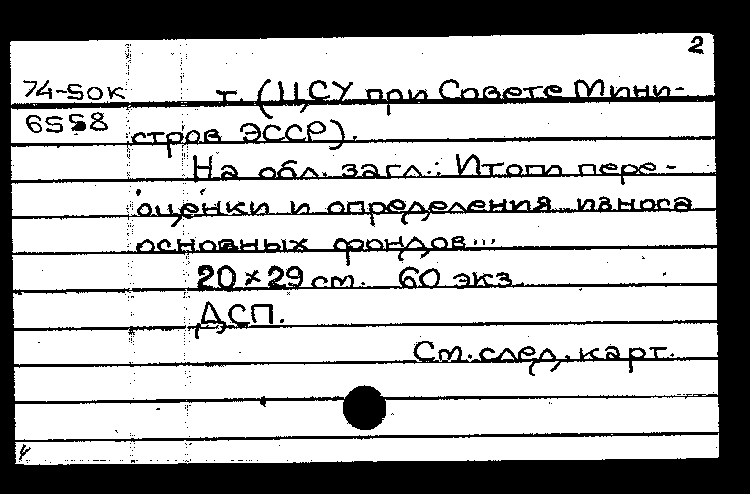 2
74-5ок т. (ЦСУ при Совете Мини-
6558 стров ЭССР).
На обл. загл.: Итоги пере-
оценки и определения износа
основных фондов...
20×29 см. 60 экз.
ДСП.
См. след. карт.